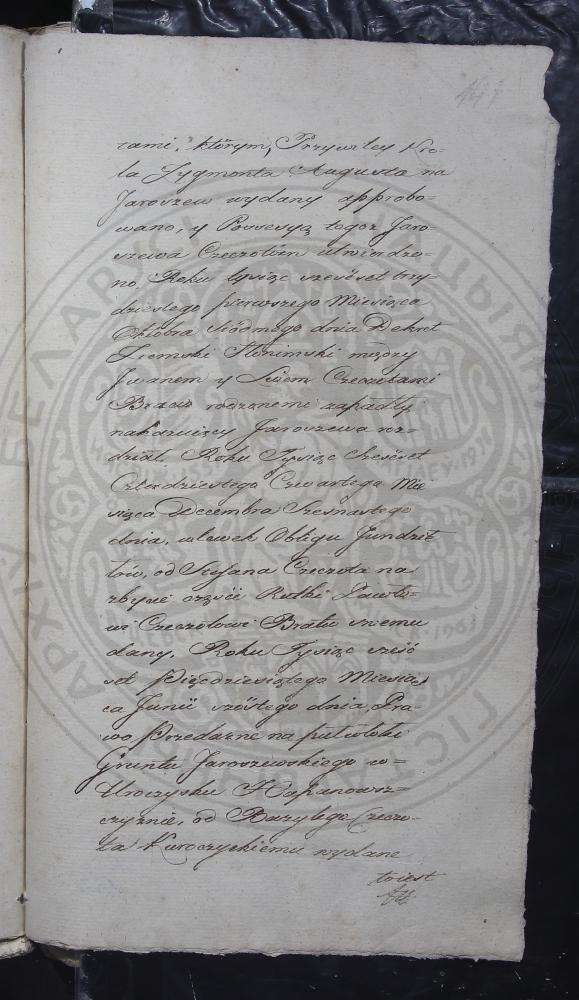 rami, którym, Przywiley Kro=
la Zygmonta Augusta na
Jaroszew wydany approbo=
wano, y Possesyą togoż Jaro=
szewa Czeczotom utwierdzo=
no, Roku tysiąc szesćset trzy
dziestego pierwszego Miesiąca
Oktobra siódmego dnia Dekret
Ziemski Słonimski między
Jwanem y Lwem Czeczotami
Bracią rodzonemi zapadły
nakazuiący Jaroszewa roz=
dział. Roku Tysiąc Szesćset
Czterdziestego Czwartego Mie
siąca Decembra Szesnastego
dnia, wlewek Obligu Jundził
łów, od Stefana Czeczota na
zbycie części Rutki Pawło=
wi Czeczotowi Bratu swemu
dany, Roku Tysiąc sześć
set Pięcdziesiątego Miesią
ca Junii szóstego dnia, Pra=
wo Przedażne na pułwłoki
Gruntu Jaroszewskiego w=
Uroczysku Hapanowsz=
czyznie, od Bazylego Czeczo=
ta Kuroczyckiemu wydane
toiest